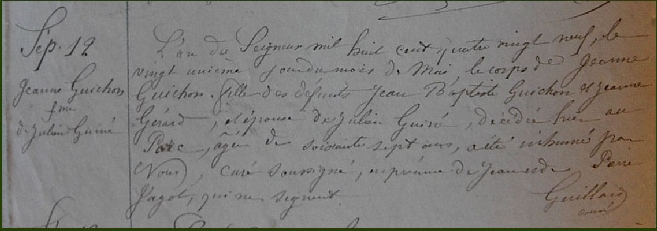 Sép. 12
Jeanne Guichon
fme
de Julien Guiné
L'an du Seigneur mil huit cent quatre vingt neuf, le
vingt unième jour du mois de Mai le corps de Jeanne
Guichon, fille des défunts Jean Baptiste Guichon et Jeanne
Gérard, et épouse de Julien Guiné, décédée hier au
Parc, âgée de soixante sept ans, a été inhumé par
Nous, curé soussigné, en présence de Jean et de Pierre
Pagot, qui ne signent.
Guillard
curé